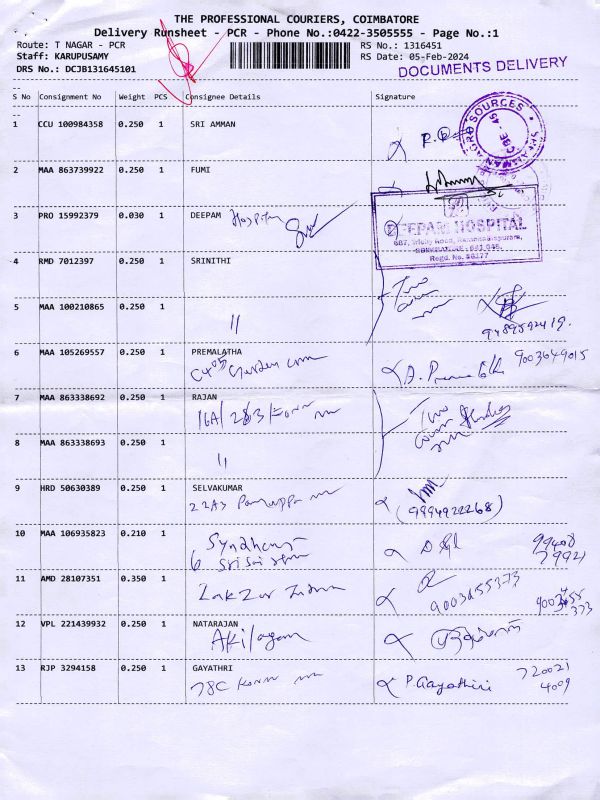 THE PROFESSIONAL COURIERS, COIMBATORE
Delivery Runsheet - PCR - Phone No.:0422-3505555 - Page No.:1
Route: T NAGAR - PCR
RS No.: 1316451
Staff: KARUPUSAMY
RS Date: 05-Feb-2024
DRS No.: DCJB131645101
DOCUMENTS DELIVERY
S No Consignment No Weight PCS Consignee Details Signature
1 CCU 100984358 0.250 1 SRI AMMAN
SRI AMMAN AGRO SOURCES
CBE - 45
2 MAA 863739922 0.250 1 FUMI
3 PRO 15992379 0.030 1 DEEPAM Hospital
DEEPAM HOSPITAL
4 RMD 7012397 0.250 1 SRINITHI
5 MAA 100210865 0.250 1 "
9489592419.
6 MAA 105269557 0.250 1 PREMALATHA
C405 Garden 9003649015
7 MAA 863338692 0.250 1 RAJAN
16A/283
8 MAA 863338693 0.250 1 "
9 HRD 50630389 0.250 1 SELVAKUMAR
22A3
(9994922268)
10 MAA 106935823 0.210 1
6 Srisai
99408
79921
11 AMD 28107351 0.350 1
9003455373
12 VPL 221439932 0.250 1 NATARAJAN
Akilagam
13 RJP 3294158 0.250 1 GAYATHRI
78C
P. Gayathiri 720021
4009